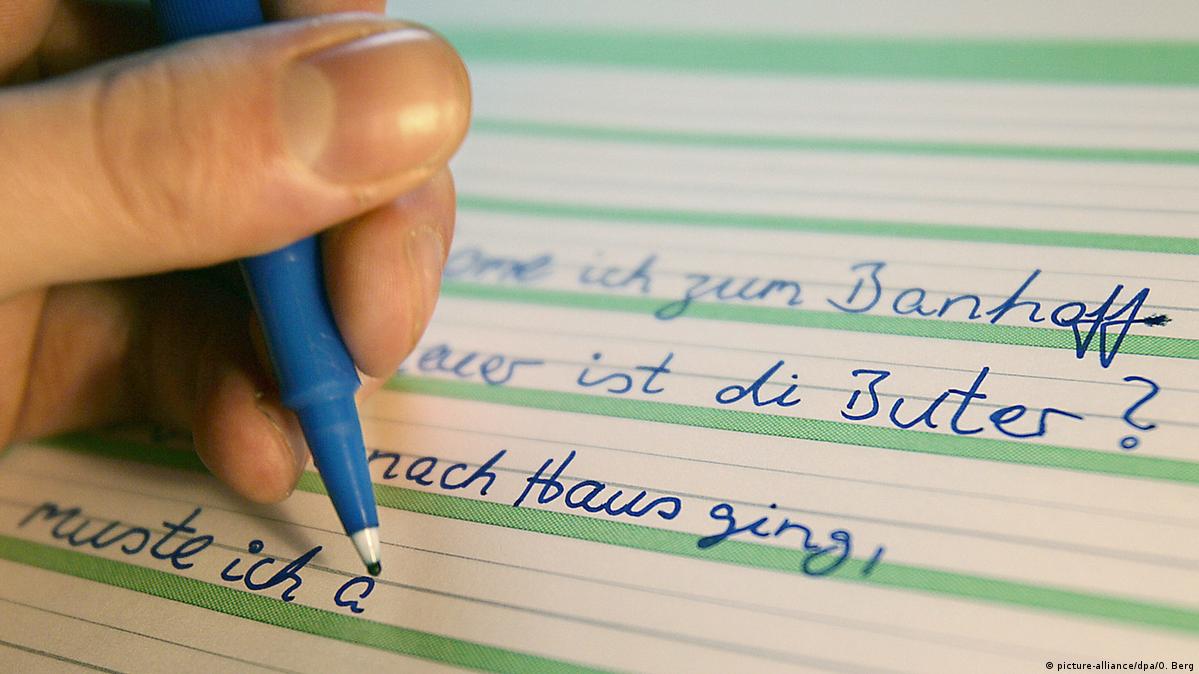 ich zum Banhoff
ist di Buter?
nach Haus ging,
muste ich a
© picture-alliance/dpa/O. Berg